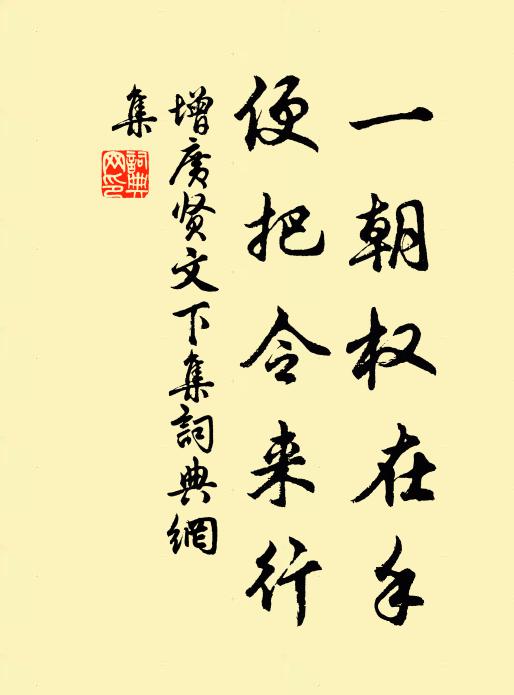 一朝权在手
便把令来行
增廣贤文下集詞典網
集
詞典網